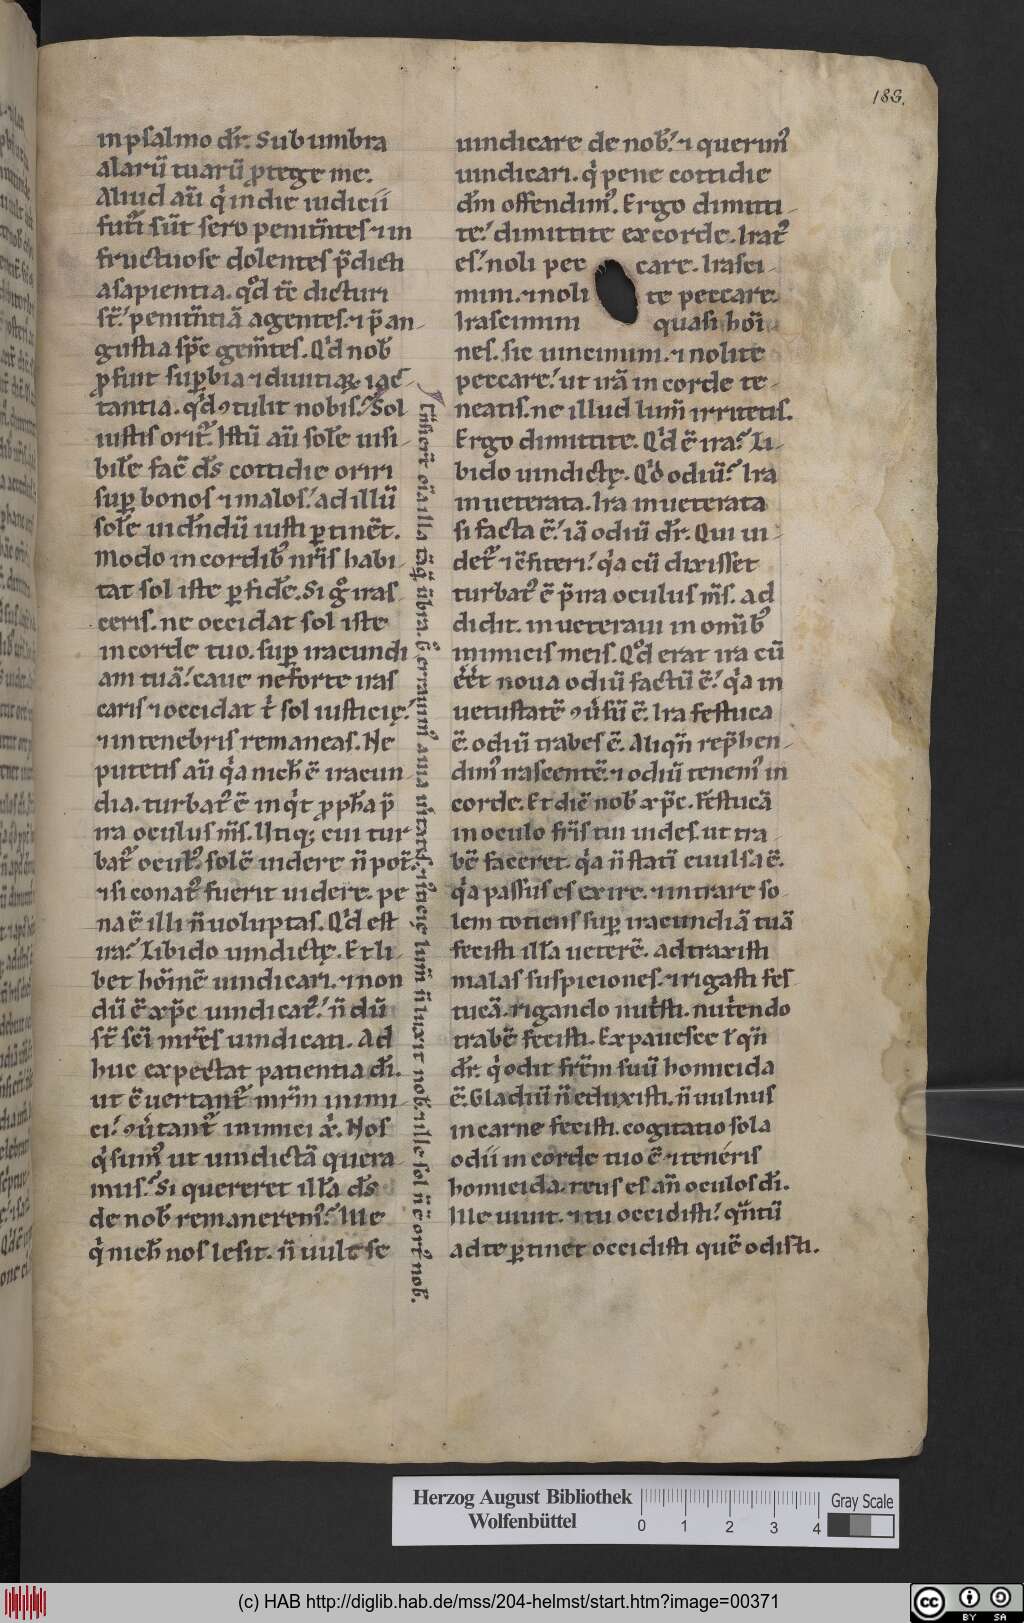 183.
in psalmo dr̄. Sub umbra
alarū tuarū ꝓtege me.
Aliud aū q̇ in die iudicii
futī sūt sero penitn̄tes ⁊ in
fructuose dolentes p̄dicti
a sapientia. qd̊ tē dicturi
st̄. penitn̄tiā agentes. ⁊ p̄ an-
gustia sp̄c gem̄tes. Qd̓ nob̄
ꝓfuit suꝑbia ⁊ diuitiaꝝ iac̄-
tantia. qd̓ ꝯtulit nobis? Sol
iustis orit᷒. Istū aū sol̄e uisi-
bil̄e fac̄ ds̄ cottidie oriri
suꝑ bonos ⁊ malos. ad illū
sol̄e uidn̄dū iusti ꝑtinēt.
Modo in cordib᷒ nr̄is habi-
tat sol iste ꝑ fidē. Si g̊ iras
ceris. ne occidat sol iste
in corde tuo. suꝑ iracundi
am tuā. caue ne forte iras
caris ⁊ occidat t̓ sol iusticię.
⁊ in tenebris remaneas. Ne
putetis aū q̓a nich̄ ē iracun-
dia. turbat᷒ ē inq̓t ꝓph̄a p̄
ira oculus ms̄. Utiq; cui tur
bat᷒ ocul᷒. solē uidere n̄ pot̄.
⁊ si conat᷒ fuerit uidere. pe
na ē illi n̄ uoluptas. Qd̓ est
ira? Libido uindictę. Et li-
bet hoīnē uindicari. ⁊ non
dū ē xp̄c uindicat᷒. n̄ dū
st̄ sc̄i mr̄es uindicati. Ad
huc expectat patientia dī.
ut ēuertant᷒ mr̄m inimi-
ci. ꝯu̓tant᷒ inimici x̄. Nos
q̓ sum᷒ ut uindictā quera-
mus? Si quereret ill̄a ds̄
de nob̄ remanerem᷒? Ille
q̓ nich̄ nos lesit. n̄ uult se
uindicare de nob̄. ⁊ querim᷒
uindicari. q̓ pene cottidie
dm̄ offendim᷒. Ergo dimitti-
te. dimittite ex corde. Irat᷒
es. noli pec care. Irasci-
mini. ⁊ noli te peccare.
Irascimini quasi hoī
nes. sic uincimini. ⁊ nolite
peccare. ut irā in corde te-
neatis. ne illud lum̄ irritetis.
Ergo dimittite. Qd̓ ē ira? Li-
bido uindictę. Qd̓ odiū? Ira
inueterata. Ira inueterata
si facta ē. iā odiū dr̄. Qui ui-
det᷒ ⁊ ꝯfiteri. q̓a cū dixisset
turbat᷒ ē p̄ ira oculus ms̄. ad
didit. inueteraui in omīb᷒
inimicis meis. Qd̊ erat ira cū
ēēt noua odiū factū ē. q̓a in
uetustatē ꝯu̓sū ē. Ira festuca
ē. odiū trabes ē. Aliqn̄ rep̄hen-
dim᷒ irascentē. ⁊ odiū tenem᷒ in
corde. Et dic̄ nob̄ xp̄c. Festucā
in oculo fr̄is tui uides. ut tra-
bē faceret. q̓a n̄ statī euulsa ē.
q̓a passus es exire. ⁊ intrare so-
lem totiens suꝑ iracundiā tuā
fecisti ill̄a ueterē. adtraxisti
malas suspiciones. ⁊ rigasti fes
tucā. rigando nut̓sti. nut̓endo
trabē fecisti. Expauesce ł qn̄
dr̄. q̓ odit fr̄em suū homicida
ē. Gladiū n̄ eduxisti. n̄ uulnus
in carne fecisti. cogitatio sola
odii in corde tuo ē ⁊ teneris
homicida. reus es an̄ oculos dī.
Ille uiuit. ⁊ tu occidisti. qn̓tū
ad te ꝑtinet occidisti quē odisti.
oīa illa tāq̄ ūbra. g̊ errauim᷒ a uia u̓itatis. ⁊ iusticię lum̄ n̄ luxit nob̄. ⁊ ille sol n̄ ē ort᷒ nob̄.
Herzog August Bibliothek
Wolfenbüttel
0 1 2 3 4
Gray Scale
(c) HAB http://diglib.hab.de/mss/204-helmst/start.htm?image=00371
cc BY SA